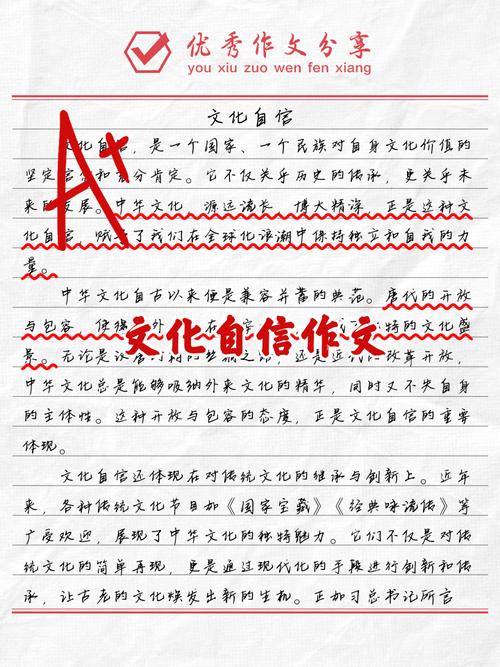 优秀作文分享
you xiu zuo wen fen xiang
文化自信
A+
文化自信，是一个国家、一个民族对自身文化价值的
坚定 和充分肯定。它不仅关乎历史的传承，更关乎未
来的发展。中华文化，源远流长，博大精深，正是这种文
化自信，赋予了我们在全球化浪潮中保持独立和自我的力
量。
中华文化自古以来便是兼容并蓄的典范。唐代的开放
与包容，使得 外 在 特的文化盛
景。无论是汉唐时期的丝绸之路，还是近代的改革开放，
文化自信作文
中华文化总是能够吸纳外来文化的精华，同时又不失自身
的主体性。这种开放与包容的态度，正是文化自信的重要
体现。
文化自信还体现在对传统文化的继承与创新上。近年
来，各种传统文化节目如《国家宝藏》《经典咏流传》等
广受欢迎，展现了中华文化的独特魅力。它们不仅是对传
统文化的简单再现，更是通过现代化的手段进行创新和传
承，让古老的文化焕发出新的生机。正如习总书记所言